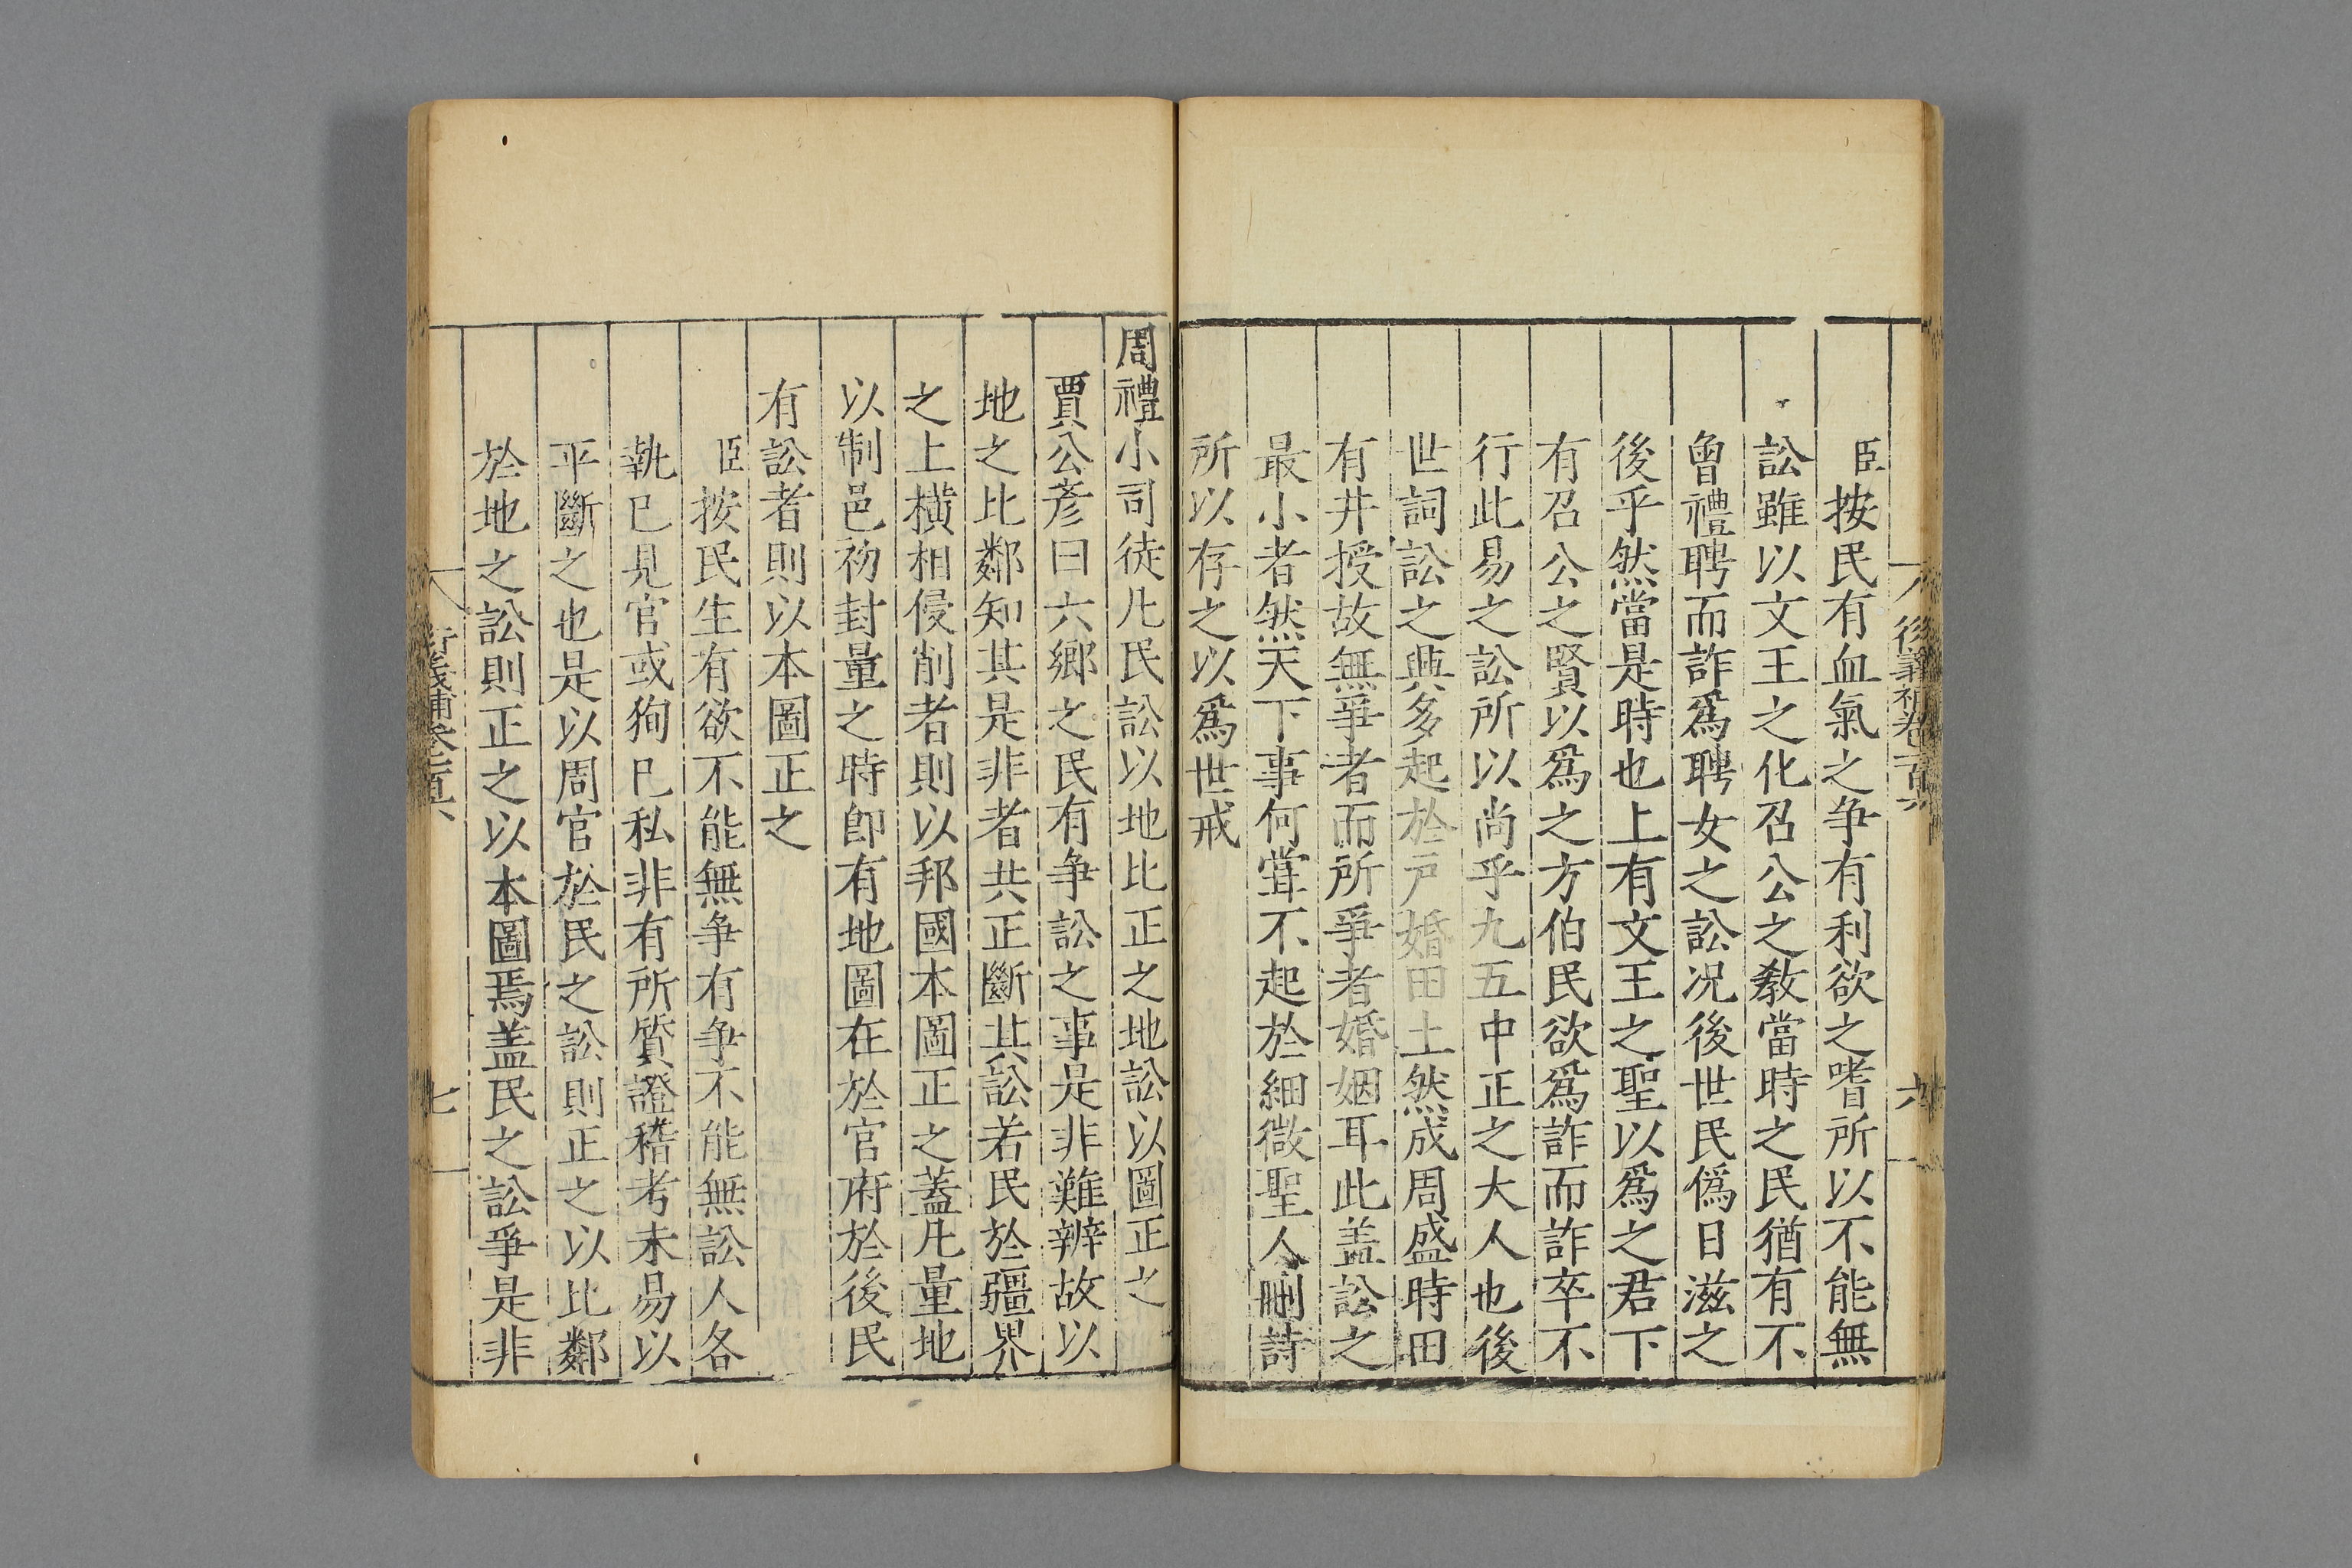 臣按民有血氣之争有利欲之嗜所以不能無
訟雖以文王之化召公之教當時之民猶有不
曾禮聘而詐爲聘女之訟况後世民僞日滋之
後乎然當是時也上有文王之聖以爲之君下
有召公之賢以爲之方伯民欲爲詐而詐卒不
行此易之訟所以尚乎九五中正之大人也後
世詞訟之興多起於戸婚田土然成周盛時田
有井授故無爭者而所爭者婚姻耳此盖訟之
最小者然天下事何甞不起於細微聖人刪詩
所以存之以爲世戒
周禮小司徒凡民訟以地比正之地訟以圖正之
賈公彦曰六鄉之民有争訟之事是非難辨故以
地之比鄰知其是非者共正斷其訟若民於疆界
之上横相侵削者則以邦國本圖正之蓋凡量地
以制邑初封量之時卽有地圖在於官府於後民
有訟者則以本圖正之
臣按民生有欲不能無争有争不能無訟人各
執已見官或狥已私非有所質證稽考未易以
平斷之也是以周官於民之訟則正之以比鄰
於地之訟則正之以本圖焉盖民之訟爭是非
七